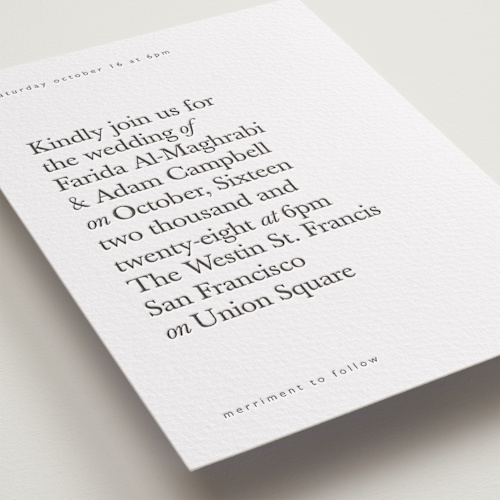 october 16 at 6pm
Kindly join us for
the wedding of
Farida Al-Maghrabi
& Adam Campbell
on October, Sixteen
two thousand and
twenty-eight at 6pm
The Westin St. Francis
San Francisco
on Union Square
merriment to follow